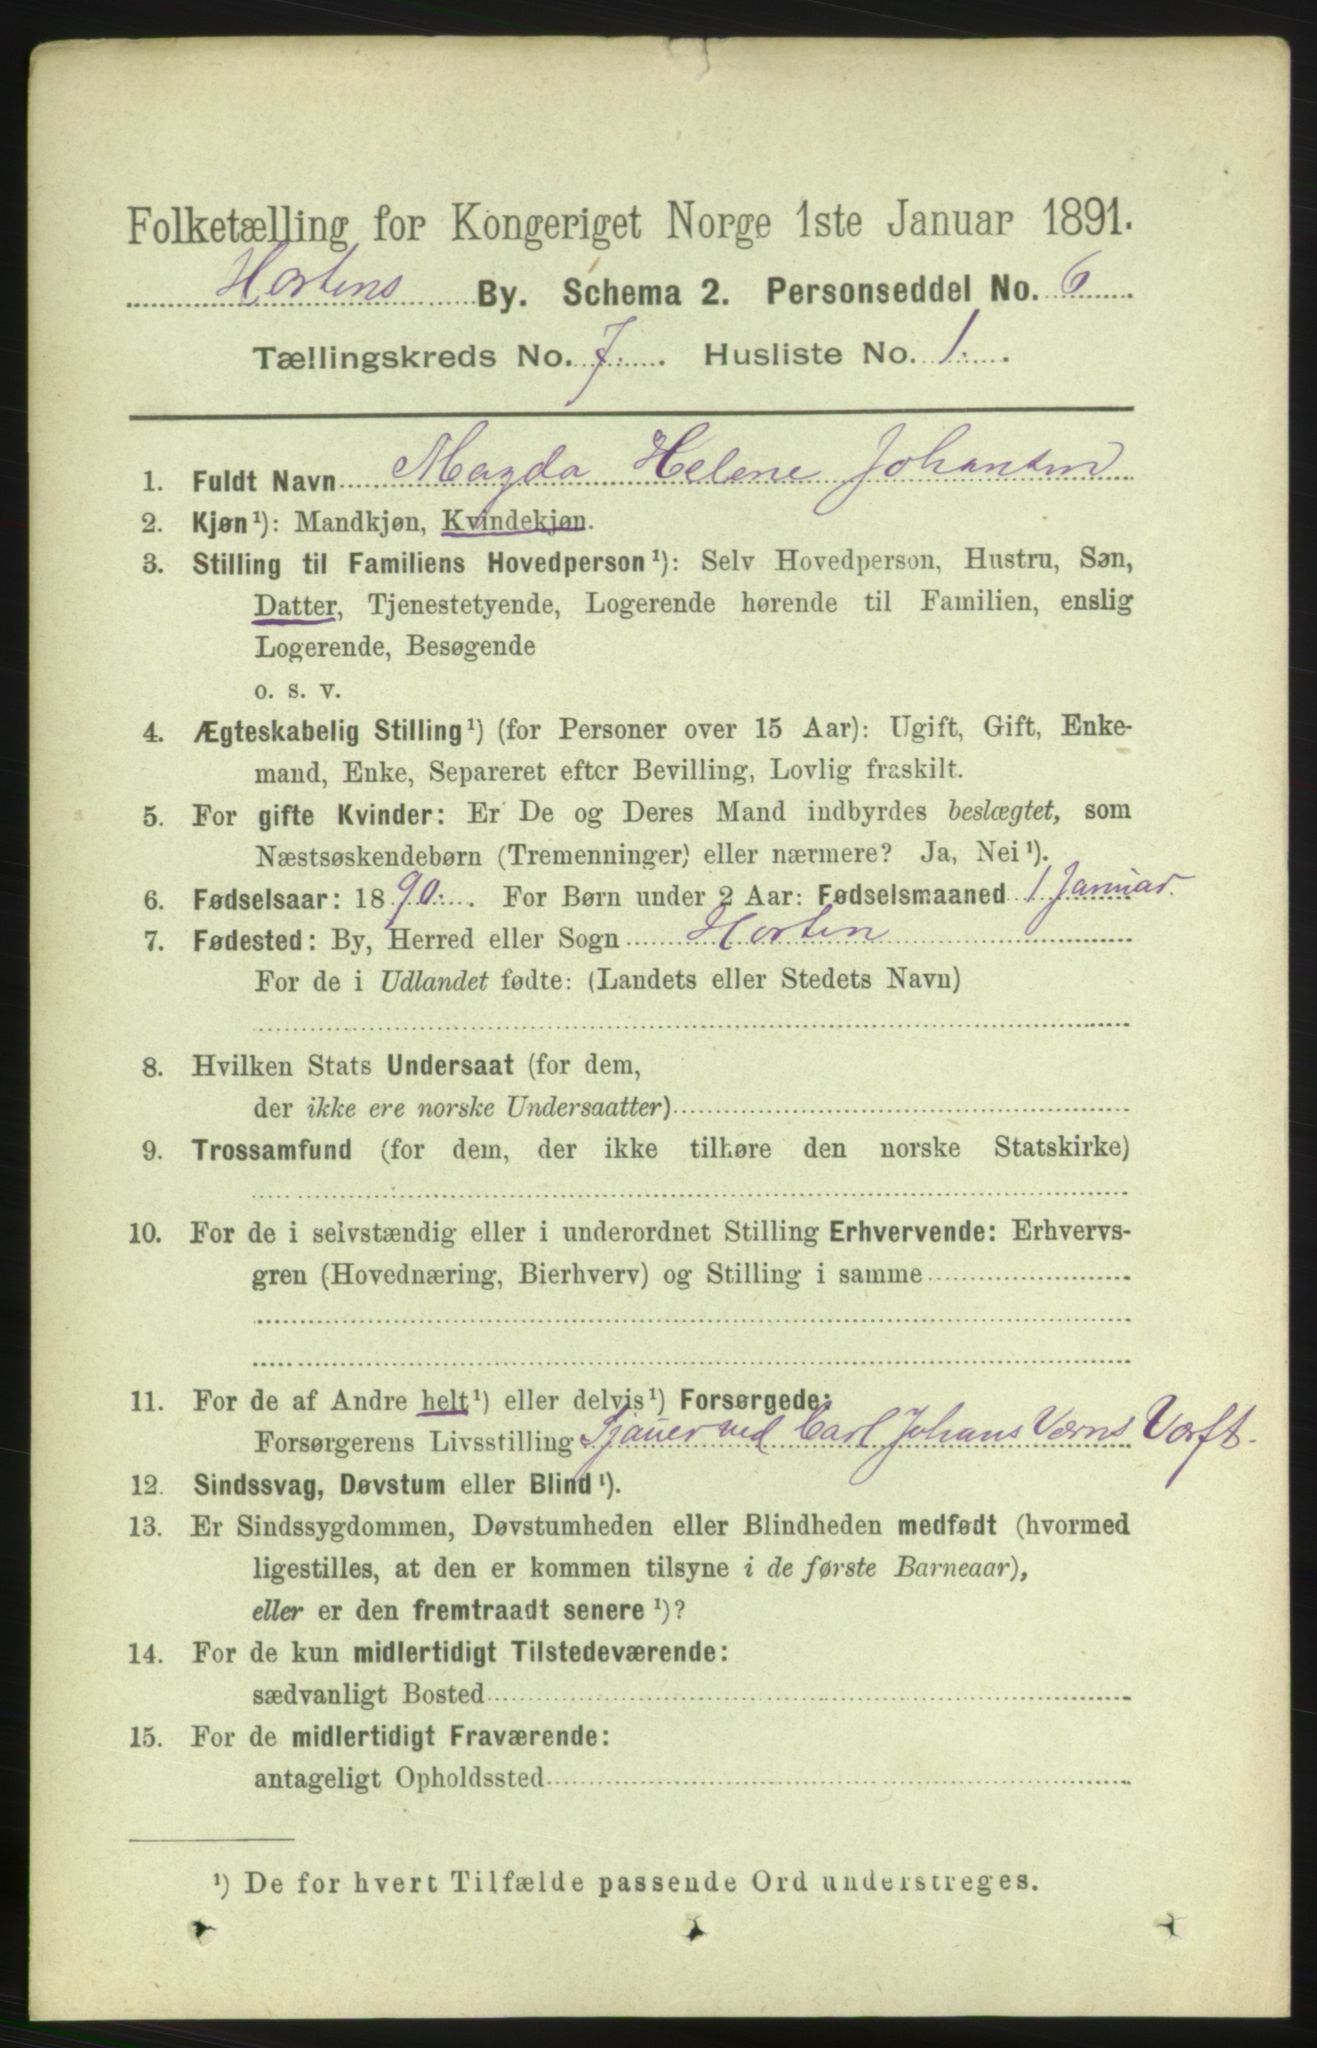 Folketælling for Kongeriget Norge 1ste Januar 1891.
Hortens By. Schema 2. Personseddel No. 6
Tællingskreds No. 7. Husliste No. 1.
1. Fuldt Navn Magda Helene Johansen
2. Kjøn ¹): Mandkjøn, Kvindekjøn.
3. Stilling til Familiens Hovedperson ¹): Selv Hovedperson, Hustru, Søn,
Datter, Tjenestetyende, Logerende hørende til Familien, enslig
Logerende, Besøgende
o. s. v.
4. Ægteskabelig Stilling ¹) (for Personer over 15 Aar): Ugift, Gift, Enke-
mand, Enke, Separeret efter Bevilling, Lovlig fraskilt.
5. For gifte Kvinder: Er De og Deres Mand indbyrdes beslægtet, som
Næstsøskendebørn (Tremenninger) eller nærmere? Ja, Nei ¹).
6. Fødselsaar: 1890. For Børn under 2 Aar: Fødselsmaaned 1 Januar.
7. Fødested: By, Herred eller Sogn Horten
For de i Udlandet fødte: (Landets eller Stedets Navn)
8. Hvilken Stats Undersaat (for dem,
der ikke ere norske Undersaatter)
9. Trossamfund (for dem, der ikke tilhøre den norske Statskirke)
10. For de i selvstændig eller i underordnet Stilling Erhvervende: Erhvervs-
gren (Hovednæring, Bierhverv) og Stilling i samme
11. For de af Andre helt ¹) eller delvis ¹) Forsørgede:
Forsørgerens Livsstilling Sjauer ved Carl Johans Værns Værft.
12. Sindssvag, Døvstum eller Blind ¹).
13. Er Sindssygdommen, Døvstumheden eller Blindheden medfødt (hvormed
ligestilles, at den er kommen tilsyne i de første Barneaar),
eller er den fremtraadt senere ¹)?
14. For de kun midlertidigt Tilstedeværende:
sædvanligt Bosted
15. For de midlertidigt Fraværende:
antageligt Opholdssted
¹) De for hvert Tilfælde passende Ord understreges.